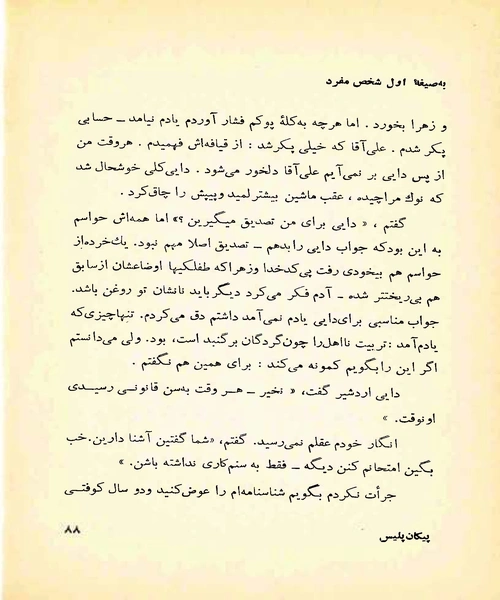 به‌صیغهٔ اول شخص مفرد
و زهرا بخورد . اما هرچه به‌کلهٔ پوکم فشار آوردم یادم نیامد ــ حسابی
پکر شدم . علی‌آقا که خیلی پکرشد : از قیافه‌اش فهمیدم . هروقت من
از پس دایی بر نمی‌آیم علی‌آقا دلخور می‌شود . دایی‌کلی خوشحال شد
که نوك مراچیده ، عقب ماشین بیشترلمید وپیپش را چاق‌کرد .
گفتم ، « دایی برای من تصدیق میگیرین ؟» اما همه‌اش حواسم
به این بودکه جواب دایی رابدهم ــ تصدیق اصلا مهم نبود. یك‌خرده‌از
حواسم هم بیخودی رفت پی‌کدخدا وزهراکه طفلکیها اوضاعشان ازسابق
هم بی‌ریختتر شده ــ آدم فکر می‌کرد دیگرباید نانشان تو روغن باشد.
جواب مناسبی برای‌دایی یادم نمی‌آمد داشتم دق می‌کردم. تنهاچیزی‌که
یادم‌آمد :تربیت نااهل‌را چون‌گردگان برگنبد است، بود. ولی می‌دانستم
اگر این رابگویم کمونه می‌کند : برای همین هم نگفتم .
دایی اردشیر گفت، « نخیر ــ هـر وقت به‌سن قانونـی رسیـدی
اونوقت. »
انگار خودم عقلم نمی‌رسید. گفتم، «شما گفتین آشنا دارین.خب
بگین امتحانم کنن دیگه ــ فقط به سنم‌کاری نداشته باشن. »
جرأت نکردم بگویم شناسنامه‌ام را عوض‌کنید ودو سال کوفتـی
۸۸
پیکان پلیس